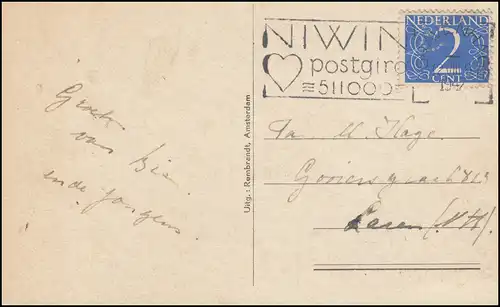 Groeten
van Bis
en de jongens.
Uitg.: Rembrandt, Amsterdam
NIWIN
postgiro
511000
NEDERLAND
2
CENT
Fa M. Kage
Gooiersgracht
Laren (NH)